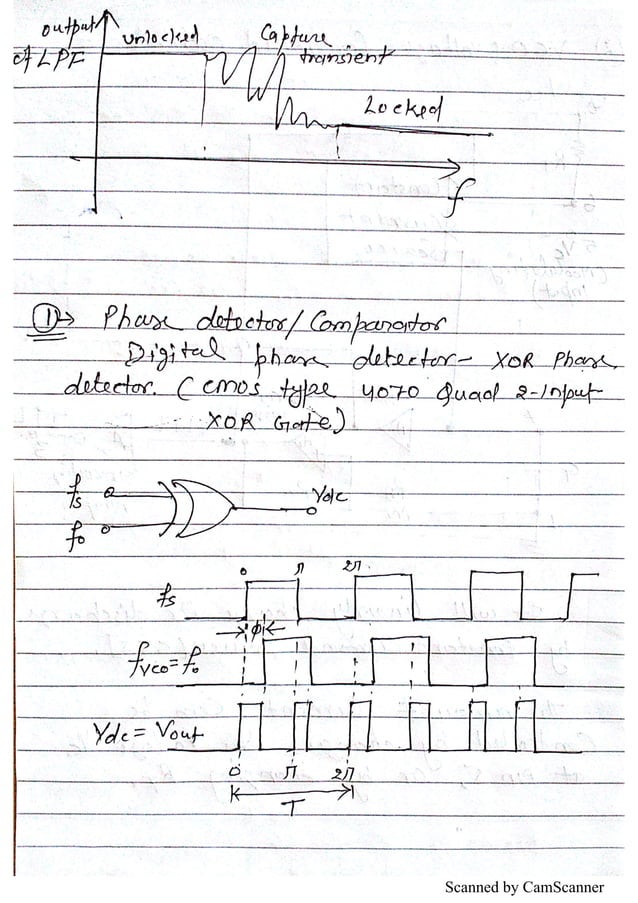 output
of LPF
unlocked
Capture
transient
Locked
f
① → Phase detector/Comparator
Digital phase detector - XOR Phase
detector. (cmos type 4070 Quad 2-Input
XOR Gate)
fs
fo
Vdc
0 π 2π
fs
→ ϕ ←
fvco = fo
Vdc = Vout
0 π 2π
T
Scanned by CamScanner